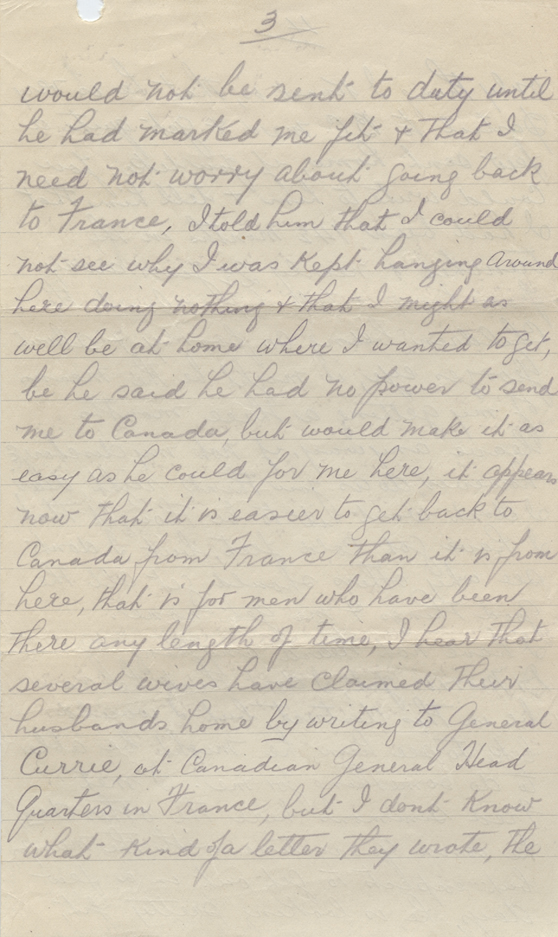 3
would not be sent to duty until
he had marked me fit & that I
need not worry about going back
to France, I told him that I could
not see why I was kept hanging around
here doing nothing & that I might as
well be at home where I wanted to get,
be he said he had no power to send
me to Canada, but would make it as
easy as he could for me here, it appears
now that it is easier to get back to
Canada from France than it is from
here, that is for men who have been
there any length of time, I hear that
several wives have claimed their
husbands home by writing to General
Currie, at Canadian General Head
Quarters in France, but I dont know
what kind of a letter they wrote, the